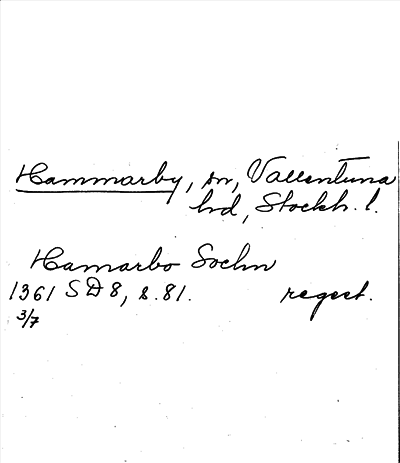 Hammarby, sn, Vallentuna
hd, Stockh. l.
Hamarbo Sochn
1361 SD 8, s. 81. regest.
3/7